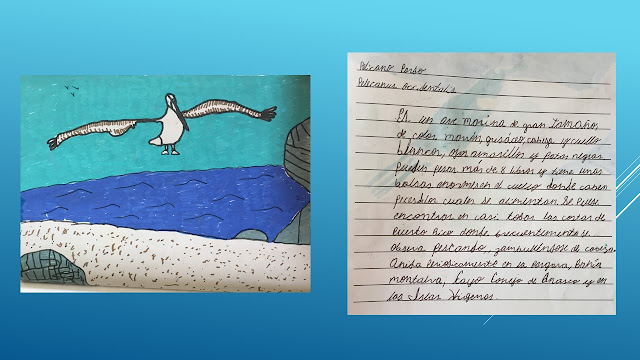 Pelicano Pardo
Pelecanus Occidentalis
Es un ave marina de gran tamaño,
de color marrón, grisáceo, cabeza y cuello
blancos, ojos amarillos y patas negras.
Pueden pesar más de 8 libras y tiene unas
bolsas enormes en el cuello donde caben
peces los cuales se alimentan. Se puede
encontrar en casi todas las costas de
Puerto Rico donde frecuentemente se
observa pescando, zambulléndose de cabeza.
Anida Periodicamente en la Parguera, Bahía
montalva, Cayo Conejo de Añasco y en
las Islas Vírgenes.